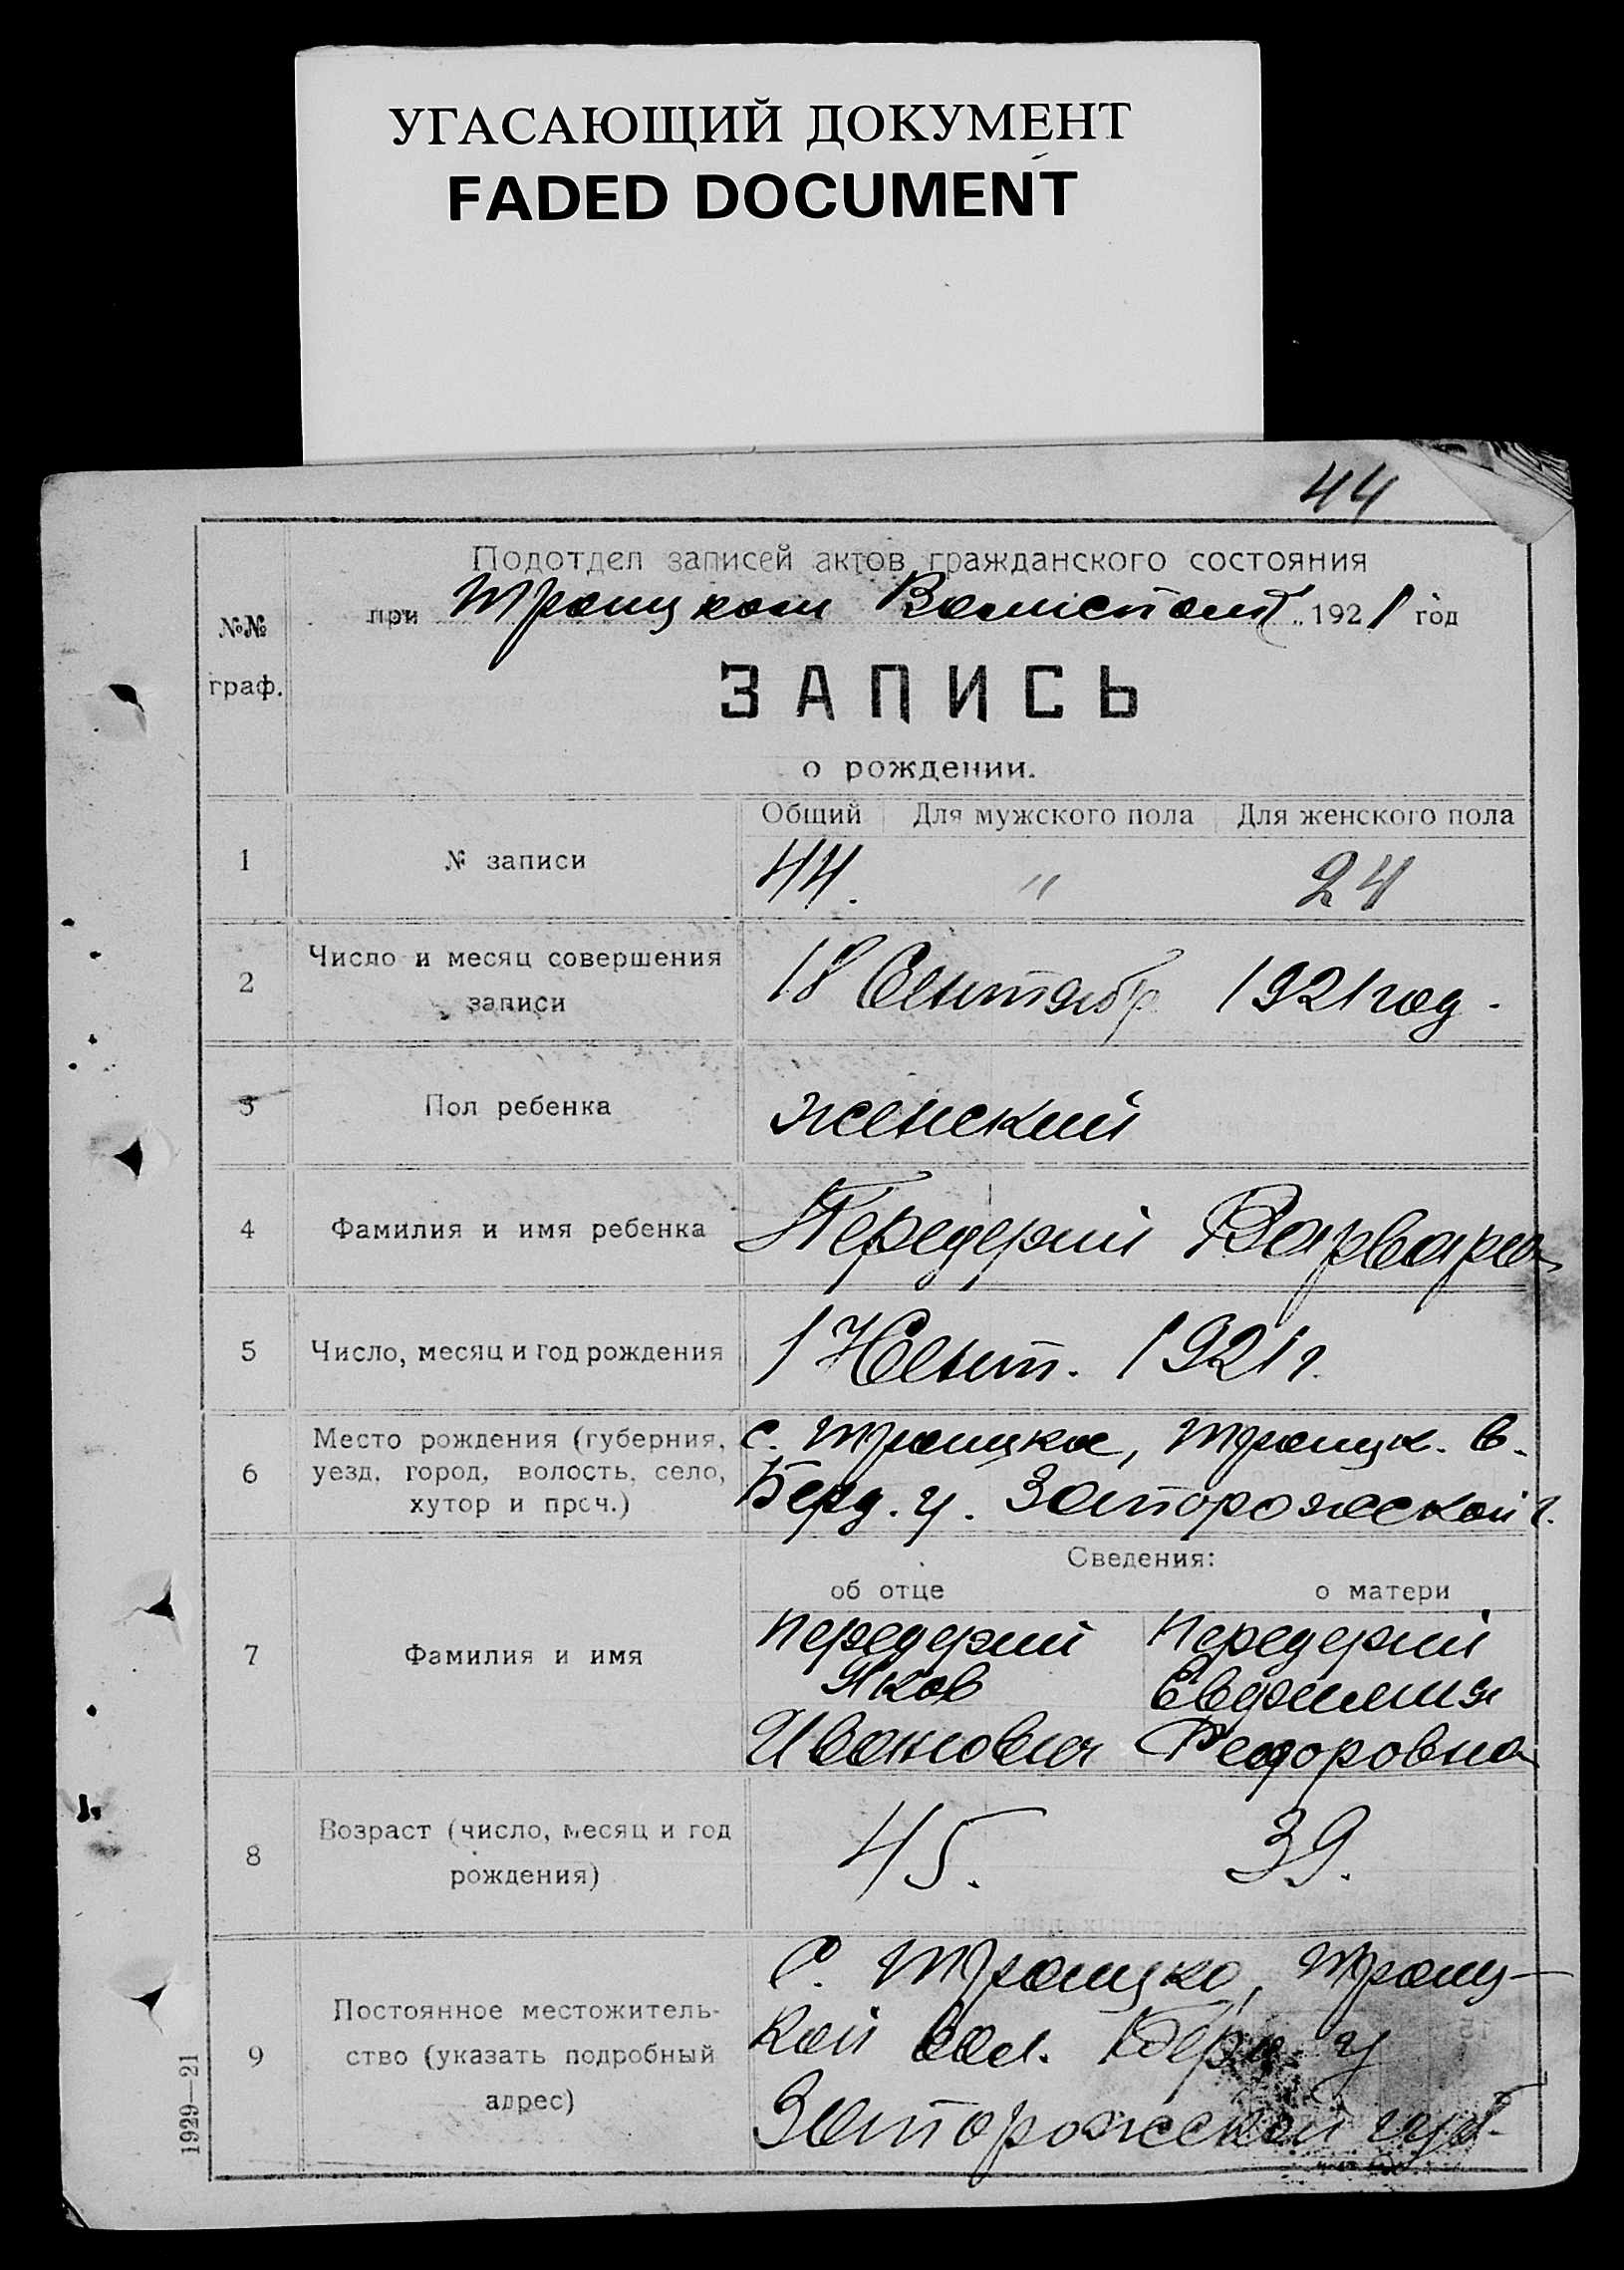 УГАСАЮЩИЙ ДОКУМЕНТ
FADED DOCUMENT
44
Подотдел записей актов гражданского состояния
при Троицком 1921 год
№№
граф.
ЗАПИСЬ
о рождении.
Общий Для мужского пола Для женского пола
1 № записи 44. " 24
2 Число и месяц совершения
записи
18 Сентябр 1921 год.
3 Пол ребенка женский
4 Фамилия и имя ребенка Передерий Варвара
5 Число, месяц и год рождения 1 Сент. 1921 г.
6 Место рождения (губерния,
уезд, город, волость, село,
хутор и проч.)
с. Троицка, Троицк. в.
Берд. у. Запорожской г.
Сведения:
об отце о матери
7 Фамилия и имя
Передерий Передерий
Яков Евфимия
Иванович Федоровна
8 Возраст (число, месяц и год
рождения)
45. 39.
9 Постоянное местожитель-
ство (указать подробный
адрес)
С. Троицко, Троиц-
кой вол. Берд. у
Запорожской губ.
1929—21